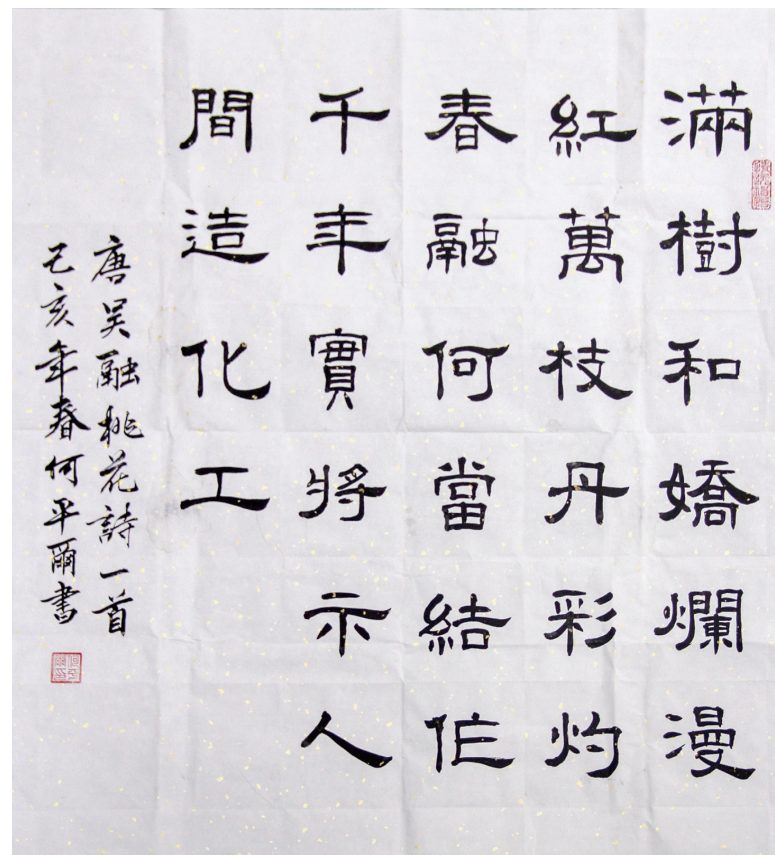 滿樹和嬌爛漫
紅萬枝丹彩灼
春融何當結作
千年實將示人
間造化工
唐吴融桃花詩一首
己亥年春何平爾書